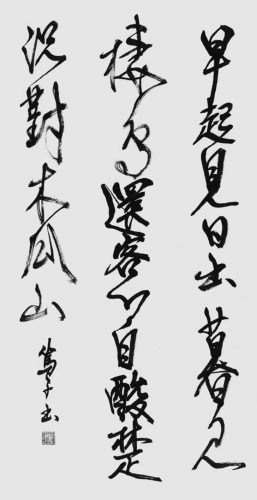 早起見日出暮見
棲鳥還客心自酸楚
況對木瓜山
篤子书